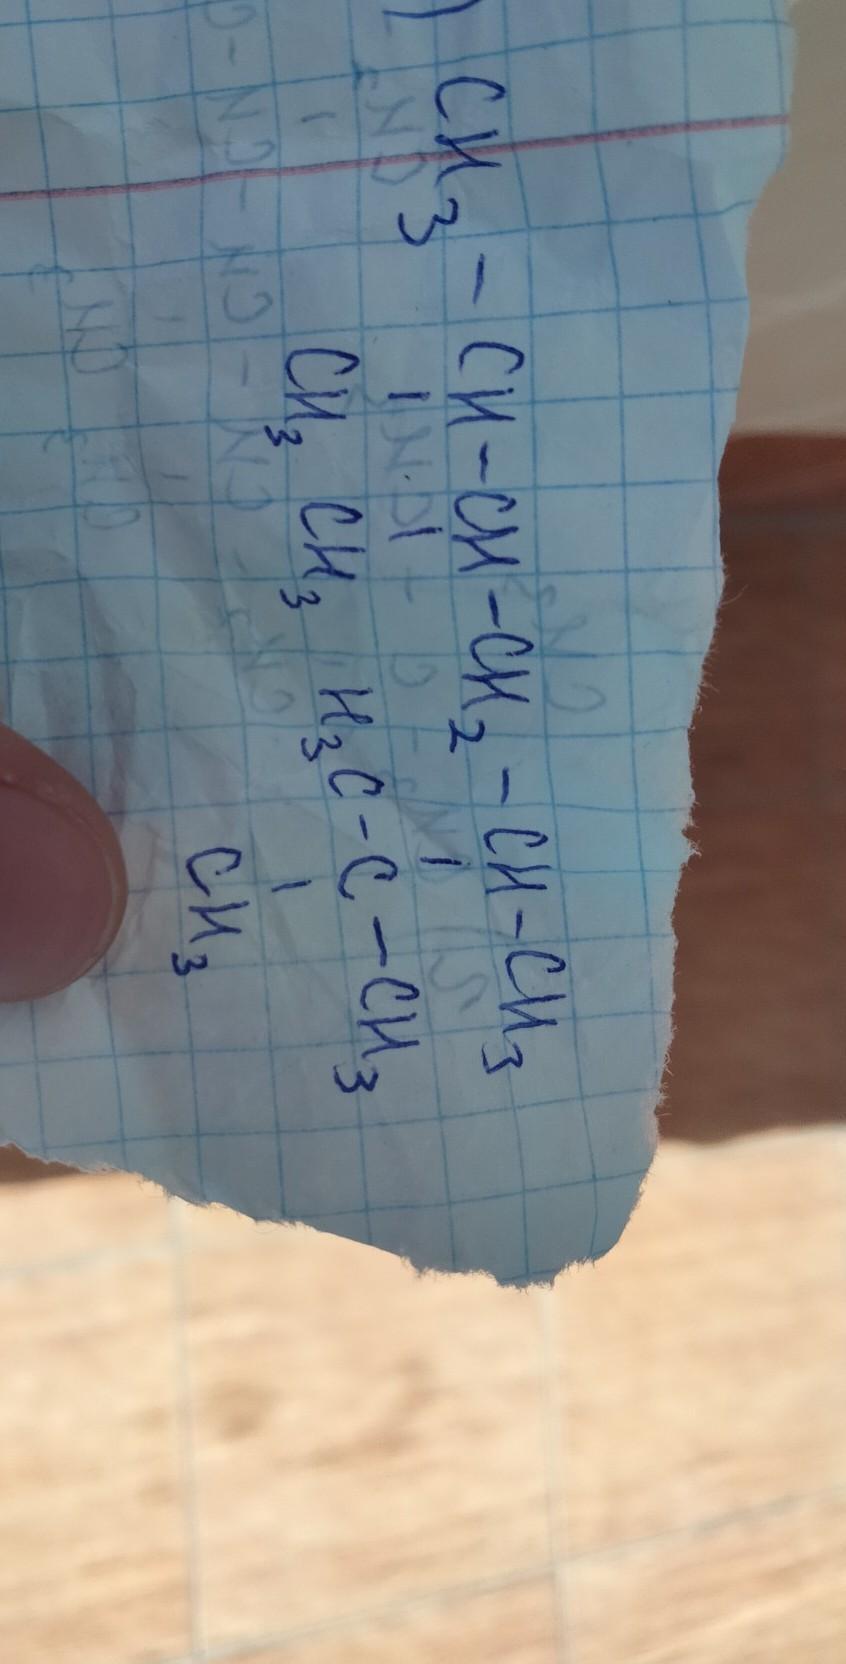 ) CH3 - CH - CH - CH2 - CH - CH3
| | |
CH3 CH3 H3C - C - CH3
|
CH3